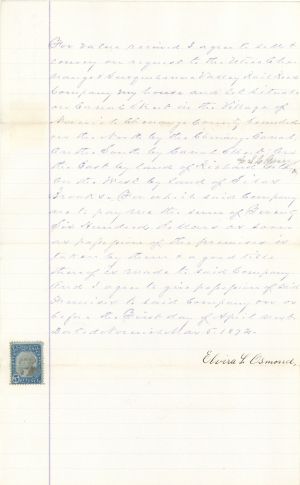 For value received I agree to sell &
convey on request to the Utica Che-
nango & Susquehanna Valley Rail Road
Company my house and lot situate
on Canal Street in the Village of
Norwich Chenango County bounded
on the North by the Chenango Canal
On the South by Canal Street On
the East by land of
On the West by land of Silas
Brooks. For which said Company
are to pay me the sum of
Six Hundred Dollars as soon
as possession of the premises is
taken by them & a good title
thereof is made to said Company
And I agree to give possession of said
Premises to said Company on or
before the First day of April next.
Dated Norwich Mar 5. 1872.
Elvira L. Osmond,